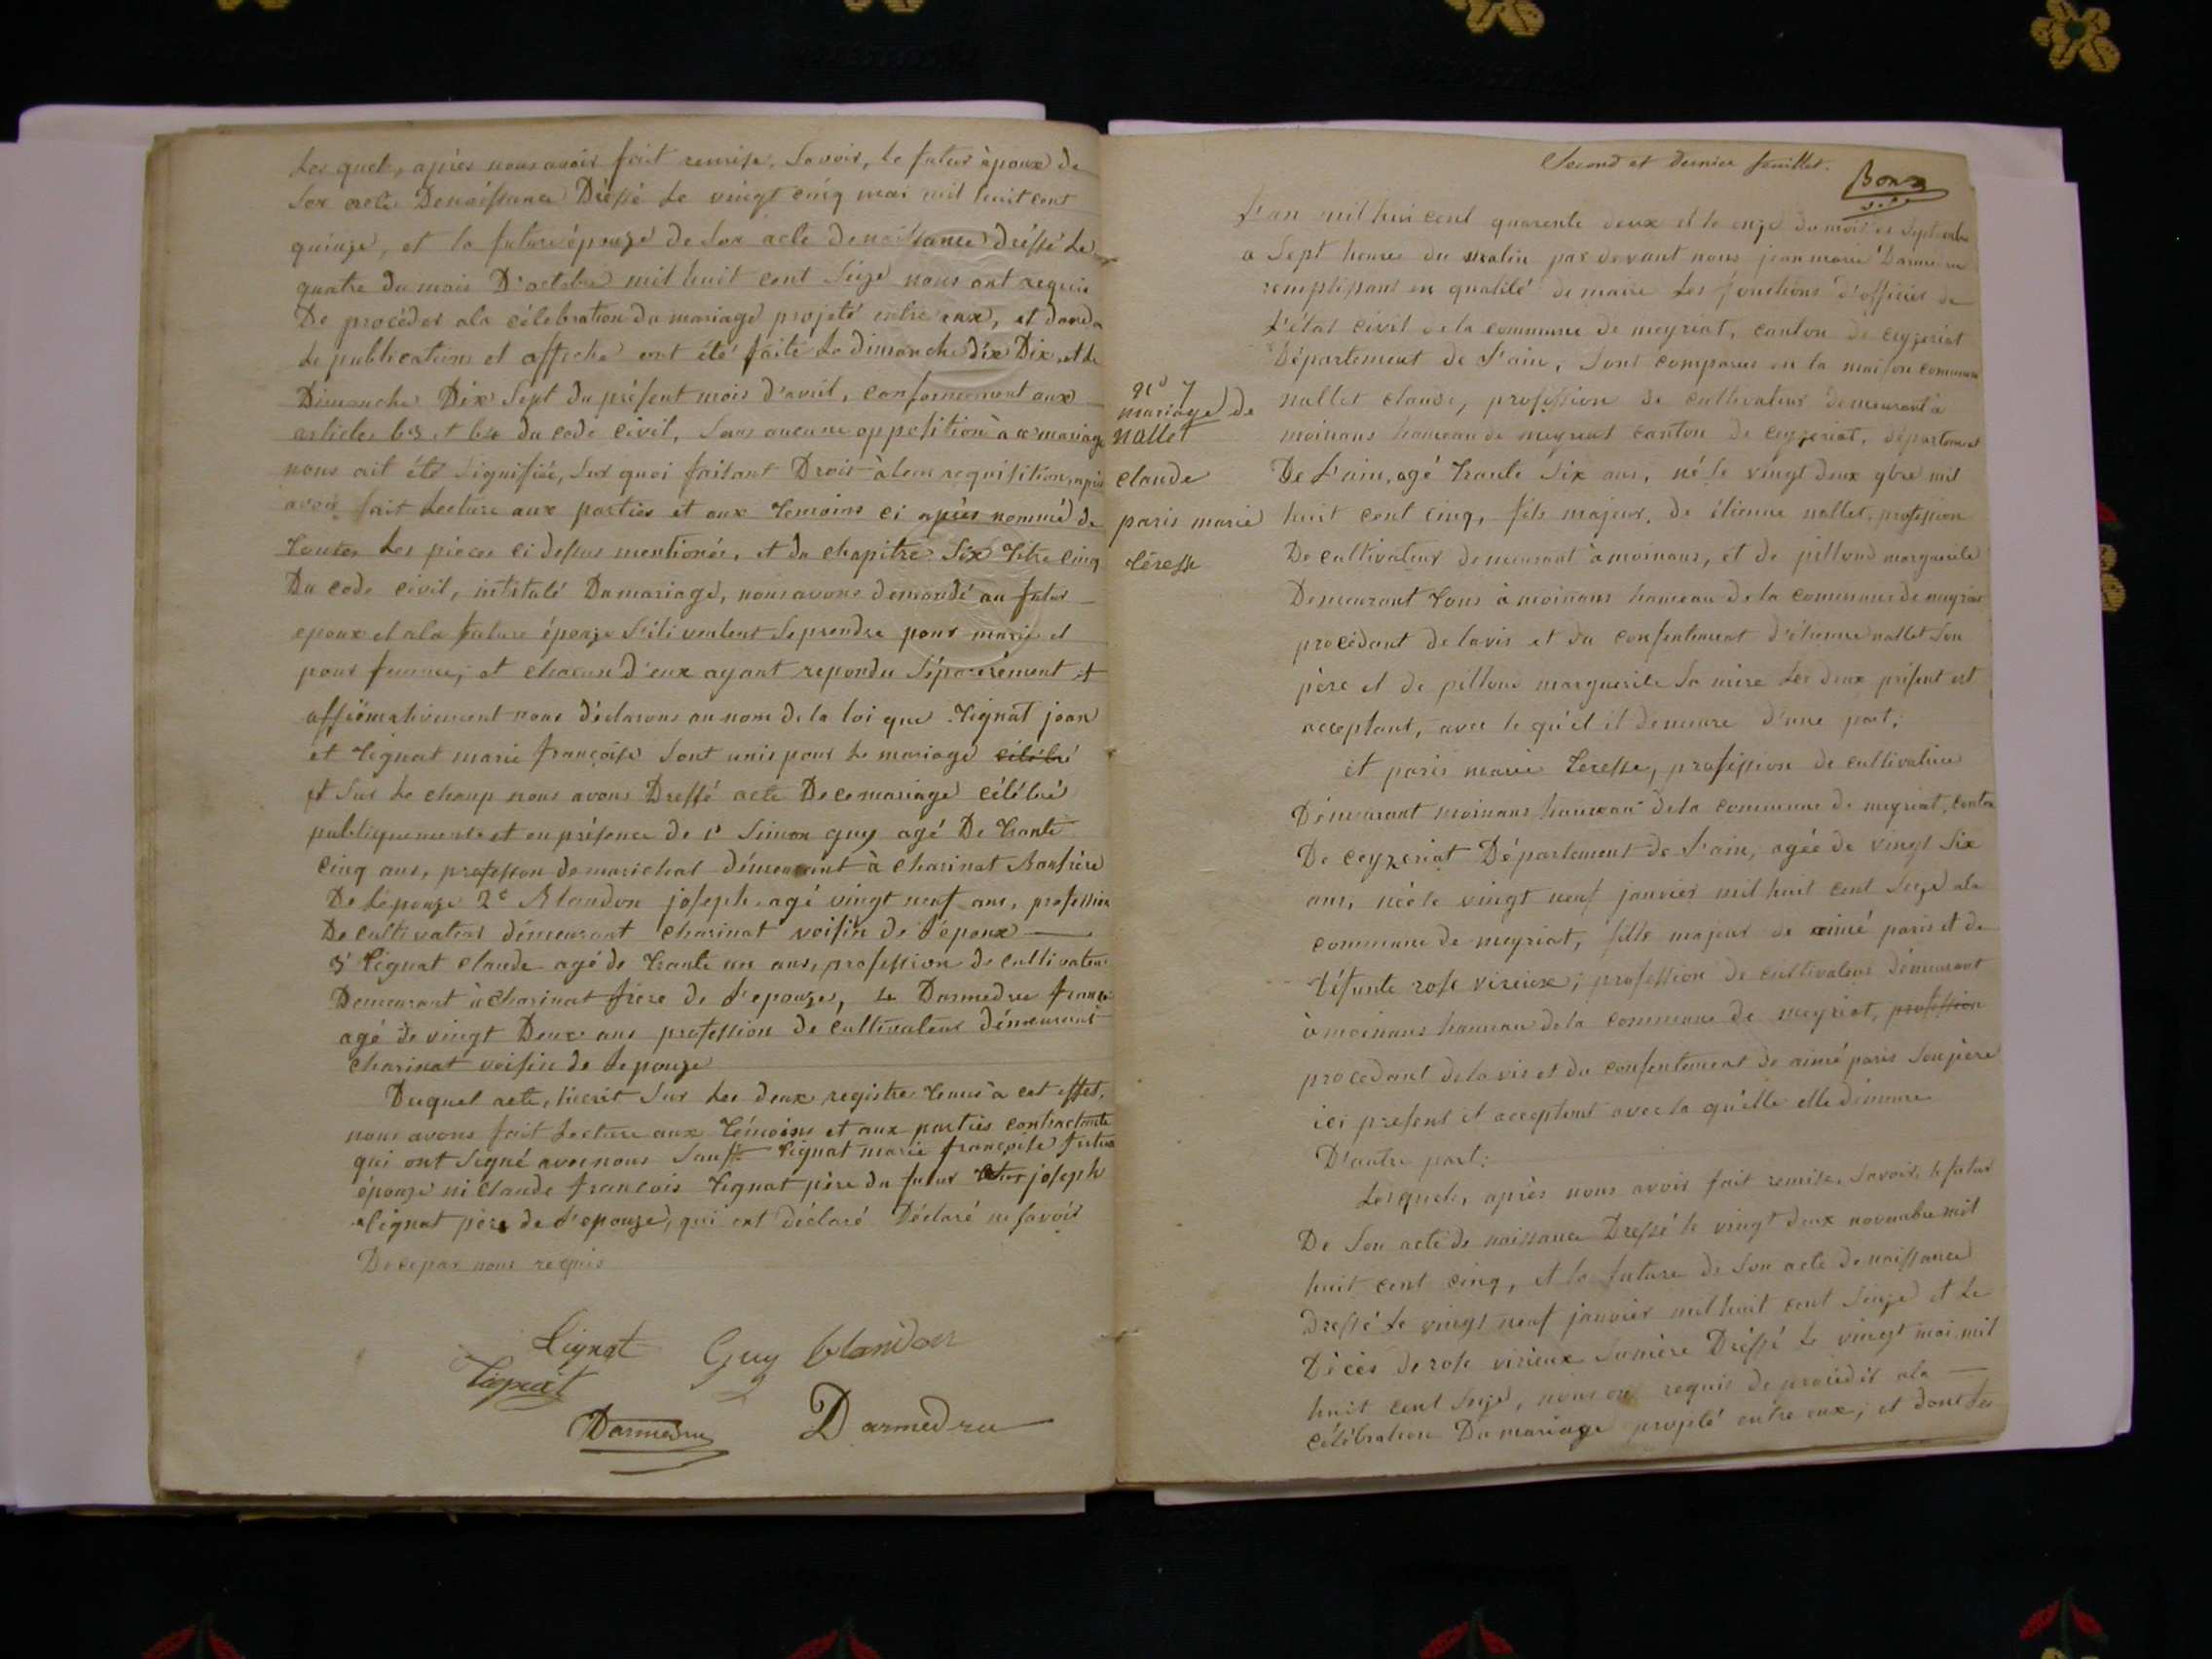 Les quels, après nous avoir fait remise, Savoir, Le futur époux de
Son acte Denaissance Dréssé Le vingt cinq mai mil huit cent
quinze, et la future épouze de Son acte denaissance dréssé Le
quatre du mois D'octobre mil huit cent Seize nous ont requis
De procéder ala célebration du mariage projeté entre eux, et dond
Le publication et affiche ont été faite Le dimanche dix Dix, et le
Dimanche Dix Sept du présent mois d'avril, conformement aux
articles 63 et 64 du code civil, Sans aucune oppesition à ce mariage
nous ait été Signifiée, Sur quoi faisant Droit à leur requisition, après
avoir fait Lecture aux parties et aux temoins ci après nommé de
toutes Les pièces ci dessus mentionée, et du chapitre Six titre cinq
Du code civil, intitulé Du mariage, nous avons demandé au futur
epoux et ala future épouze S'ils veulent Se prendre pour marie et
pour femme, et chacun d'eux ayant repondu Séparérement et
affirmativement nous déclarons au nom de la loi que Tignat jean
et Tignat marie françoise Sont unis pour Le mariage célébré
et Sur Le champ nous avons Dressé acte De ce mariage célébré
publiquement et en présence de 1° Simon guy agé De trante
cinq ans, profession de marichal démeurant à charinat Baufrère
De Lépouze 2e Blandon joseph agé vingt neuf ans, profession
De cultivateur démeurant charinat voisin de l'époux
3° Tignat claude agé de trante un ans, profession de cultivateur
Demeurant à charinat frère de l'epouze, 4e Darmedru françois
agé de vingt Deux ans profession de cultivateur démeurant
charinat voisin de Lepouze
Duquel acte, liscrit Sur Les deux registre tenus à cet effet,
nous avons fait Lecture aux témoins et aux parties contractante
qui ont Signé avec nous Sauf Tignat marie françoise future
épouze ni claude francois Tignat père du futur joseph
Tignat père de l'epouze, qui ont déclaré Déclaré ne savoir
De ce par nous requis
Tignat Guy blandon
Tignat
Darmedru Darmedru
Second et Dernier feuillet.
Bon
L'an mil hui cent quarente deux et le onze du mois de Septembre
a Sept heures du matin par devant nous jean marie Darmedru
remplissant en qualité de maire Les fonctions d'officier de
L'état civil de la commune de meyriat, canton de ceyzeriat
Département de L'ain, Sont comparus en la maison commune
nallet claude, profession de cultivateur demeurant à
moinans hameau de meyriat canton de ceyzeriat, département
De L'ain, agé trante Six ans, né le vingt deux 9bre mil
huit cent cinq, fils majeur, de étienne nallet, profession
De cultivateur demeurant à moinans, et de pillond marguerite
Demeurant tous à moinans hameau de la commune de meyriat
procédant de lavis et du consentement d'étienne nallet Son
père et de pillond marguerite Sa mère Les deux présent et
acceptant, avec le qu'el il demeure d'une part.
N° 7
mariage de
nallet
claude
paris marie
téresse
et paris marie teresse, profession de cultivatrice
Démeurant moinans hameau de la commune de meyriat, canton
De ceyzeriat Département de L'ain, agée de vingt Six
ans, née le vingt neuf janvier mil huit cent Seize ala
commune de meyriat, fille majeur de aimé paris et de
défunte rose virieux, profession de cultivateur démeurant
à moinans hameau de la commune de meyriat, profession
procedant de la vis et du consentement de aimé paris Son père
ici présent et acceptent avec la qu'elle elle démeure
D'autre part.
Les quels, après nous avoir fait remise, Savoir, le futur
De Son acte de naissance Dressé le vingt deux novembre mil
huit cent cinq, et la future de Son acte de naissance
Dressé Le vingt neuf janvier mil huit cent Seize et Le
Décès de rose virieux Samère Dréssé Le vingt mai mil
huit cent Seize, nous on requis de procéder ala
célébration Du mariage entre eux; et dont Les